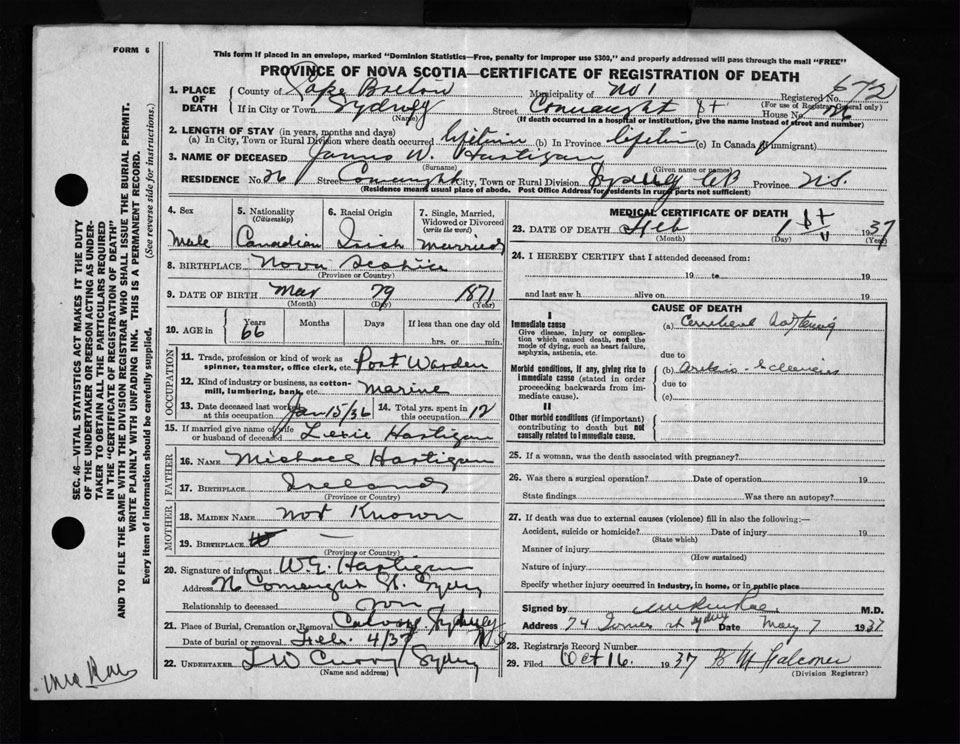 FORM 6
This form if placed in an envelope, marked "Dominion Statistics—Free, penalty for improper use $300," and properly addressed will pass through the mail "FREE"
PROVINCE OF NOVA SCOTIA—CERTIFICATE OF REGISTRATION OF DEATH
Registered No. 672
(For use of Registrar General only)
1. PLACE OF DEATH
County of Cape Breton Municipality of No 1
If in City or Town Sydney Street Connaught St House No. 26
(Name) (If death occurred in a hospital or institution, give the name instead of street and number)
2. LENGTH OF STAY (in years, months and days)
(a) In City, Town or Rural Division where death occurred lifetim (b) In Province lifetim (c) In Canada (if immigrant)
3. NAME OF DECEASED James W. Hartigan
(Surname) (Given name or names)
RESIDENCE No. 26 Street Connaught City, Town or Rural Division Sydney CB Province N.S.
(Residence means usual place of abode. Post Office Address for residents in rural parts not sufficient)
4. Sex Male
5. Nationality (Citizenship) Canadian
6. Racial Origin Irish
7. Single, Married, Widowed or Divorced (write the word) Married
8. BIRTHPLACE Nova Scotia
(Province or Country)
9. DATE OF BIRTH Mar 29 1871
(Month) (Day) (Year)
10. AGE in Years 66 Months Days If less than one day old
hrs. or min.
OCCUPATION
11. Trade, profession or kind of work as spinner, teamster, office clerk, etc. Port Warden
12. Kind of industry or business, as cotton-mill, lumbering, bank etc. Marine
13. Date deceased last worked at this occupation Jan 15/36 14. Total yrs. spent in this occupation 12
15. If married give name of wife or husband of deceased Lexie Hartigan
FATHER
16. NAME Michael Hartigan
17. BIRTHPLACE Ireland
(Province or Country)
MOTHER
18. MAIDEN NAME Not Known
19. BIRTHPLACE —
(Province or Country)
20. Signature of informant W.G. Hartigan
Address Connaught St. Sydney
Relationship to deceased Son
21. Place of Burial, Cremation or Removal Calvary Sydney N S
Date of burial or removal Feb. 4/37
22. UNDERTAKER T W Curry Sydney
(Name and address)
MEDICAL CERTIFICATE OF DEATH
23. DATE OF DEATH Feb 1st 1937
(Month) (Day) (Year)
24. I HEREBY CERTIFY that I attended deceased from:
19 to 19
and last saw h alive on 19
CAUSE OF DEATH
I
Immediate cause
Give disease, injury or complication which caused death, not the mode of dying, such as heart failure, asphyxia, asthenia, etc.
(a) Cerebral
due to
Morbid conditions, if any, giving rise to immediate cause (stated in order proceeding backwards from immediate cause).
(b)
due to
(c)
II
Other morbid conditions (if important) contributing to death but not causally related to immediate cause.
25. If a woman, was the death associated with pregnancy?
26. Was there a surgical operation? Date of operation 19
State findings Was there an autopsy?
27. If death was due to external causes (violence) fill in also the following:—
Accident, suicide or homicide? Date of injury 19
(State which)
Manner of injury
(How sustained)
Nature of injury
Specify whether injury occurred in industry, in home, or in public place
Signed by M.D.
Address 74 Sydney Date May 7 1937
28. Registrar's Record Number
29. Filed Oct 16. 1937 Falconer
(Division Registrar)
SEC. 46—VITAL STATISTICS ACT MAKES IT THE DUTY
OF THE UNDERTAKER OR PERSON ACTING AS UNDER-
TAKER TO OBTAIN ALL THE PARTICULARS REQUIRED
IN THE "CERTIFICATE OF REGISTRATION OF DEATH"
AND TO FILE THE SAME WITH THE DIVISION REGISTRAR WHO SHALL ISSUE THE BURIAL PERMIT.
WRITE PLAINLY WITH UNFADING INK. THIS IS A PERMANENT RECORD.
Every item of information should be carefully supplied. (See reverse side for instructions.)